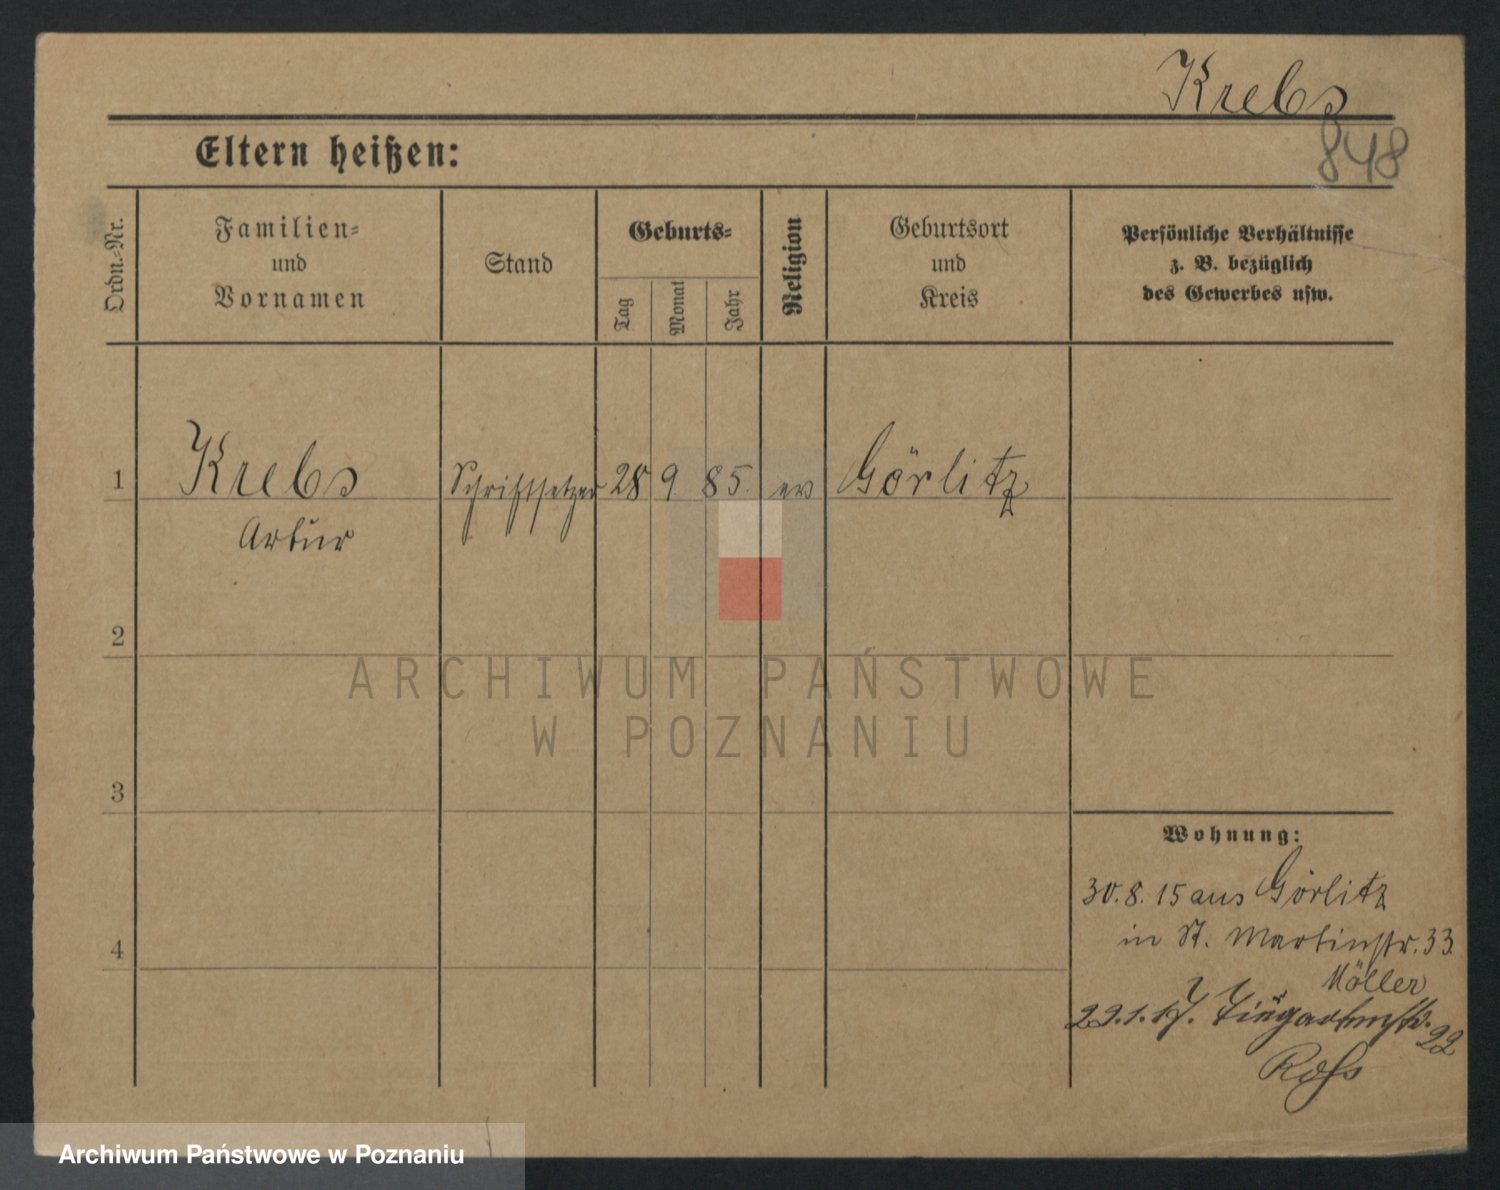 Krebs
848
Eltern heißen:
Ordn.-Nr.
Familien-
und
Vornamen
Stand
Geburts-
Tag
Monat
Jahr
Religion
Geburtsort
und
Kreis
Persönliche Verhältnisse
z. B. bezüglich
des Gewerbes usw.
1 Krebs Schriftsetzer 28 9. 85. ev Görlitz
Artur
2
3
4
Wohnung:
30.8.15 aus Görlitz
in St. Martinstr. 33.
Möller
22.1.17. Tiergartenstr. 22
ARCHIWUM PAŃSTWOWE
W POZNANIU
Archiwum Państwowe w Poznaniu